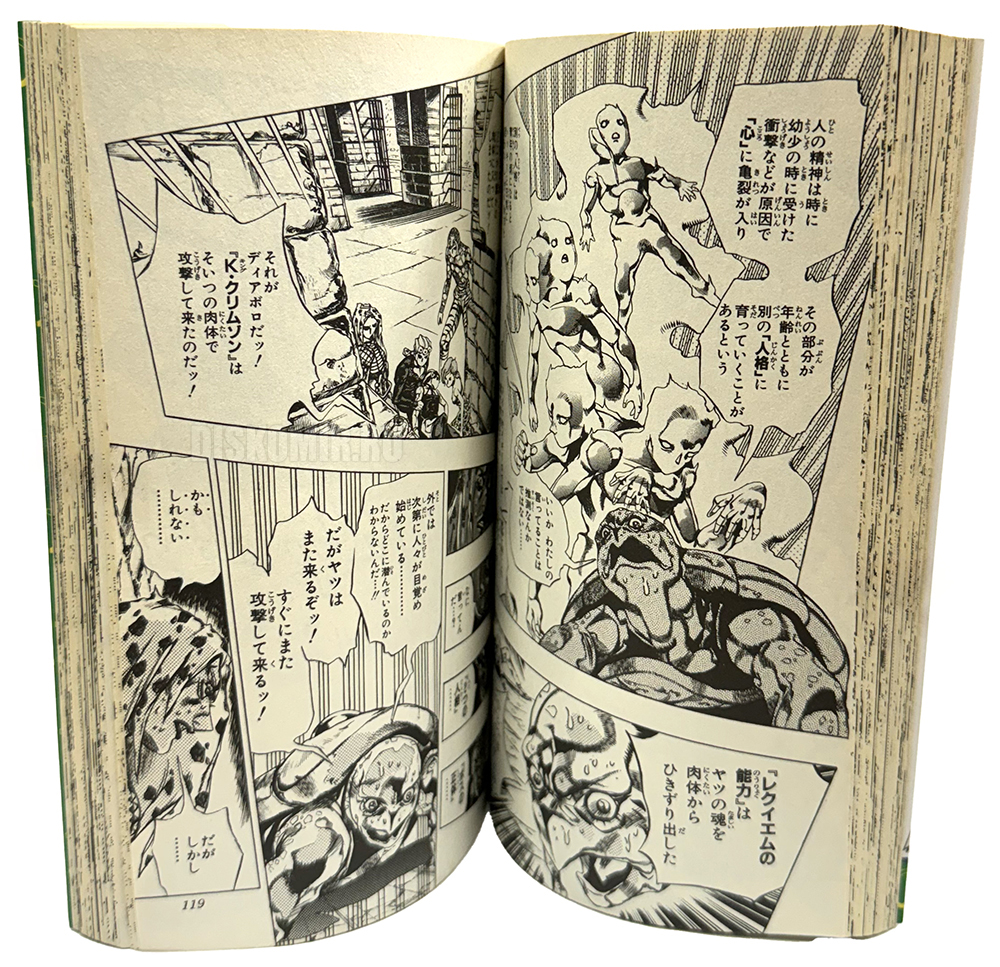 人の精神は時に
幼少の時に受けた
衝撃などが原因で
『心』に亀裂が入り
その部分が
年齢とともに
別の『人格』に
育っていくことが
あるという
いいか わたしの
言ってることは
推測なんか
ではない……
『レクイエムの
能力』は
ヤツの魂を
肉体から
ひきずり出した
それが
ディアボロだッ!
『K・クリムソン』は
そいつの肉体で
攻撃して来たのだッ!
外では
次第に人々が目覚め
始めている…………
だからどこに潜んでいるのか
わからないんだ!!
だがヤツは
また来るぞッ!
すぐにまた
攻撃して来るッ!
かも
しれない
…………
だが
しかし
……
119